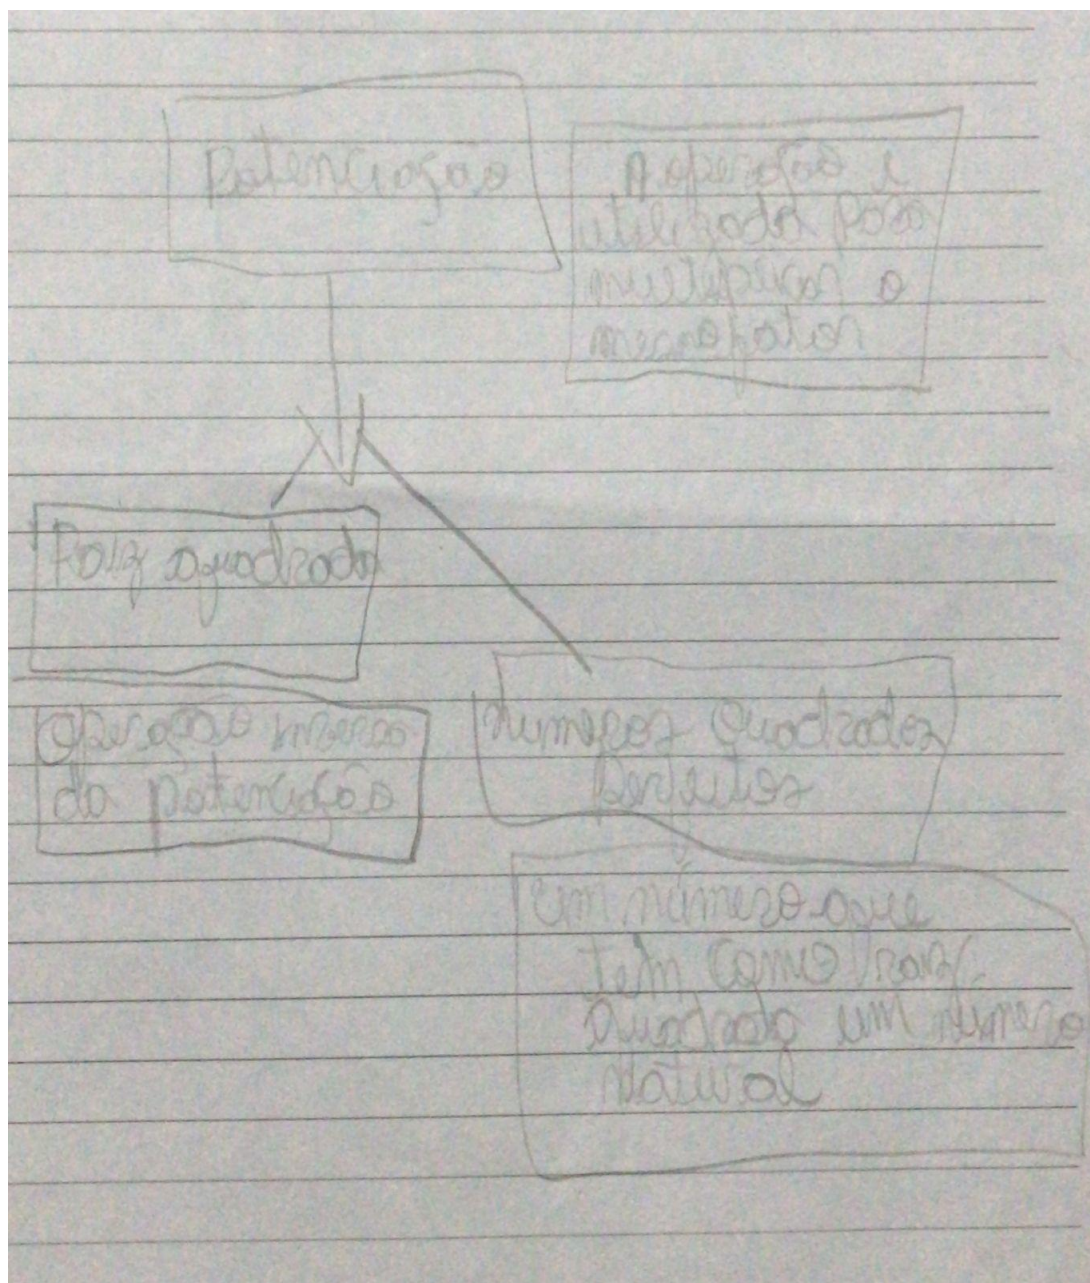 Potenciação
A operação é
utilizada para
multiplicar o
mesmo fator
Raiz quadrada
Operação inversa
da potenciação
Números Quadrados
Perfeitos
Um número que
tem como raiz
quadrada um número
Natural